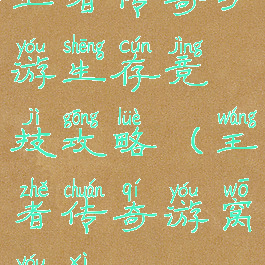 王者传奇
yóu shēng cún jìng
游生存竞
jì gōng lüè wáng
技攻略（王
zhě chuán qí yóu wō
者传奇游窝
yóu xì